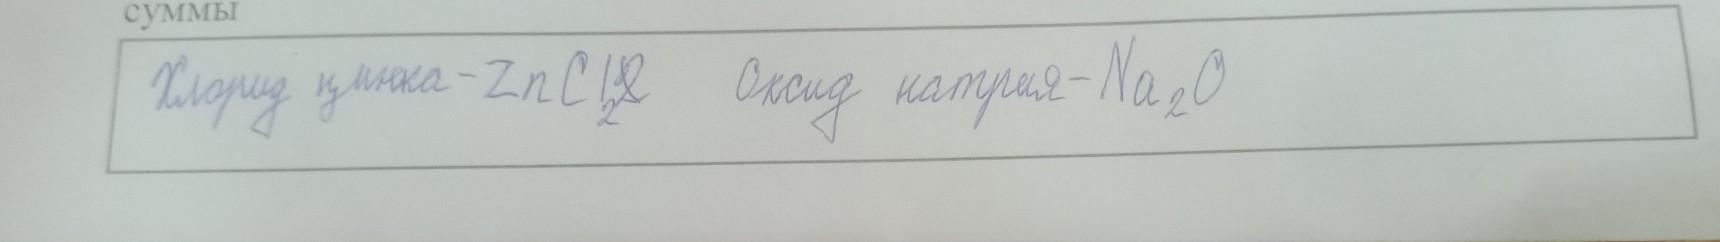 суммы
Хлорид цинка - ZnCl₂ Оксид натрия - Na₂O